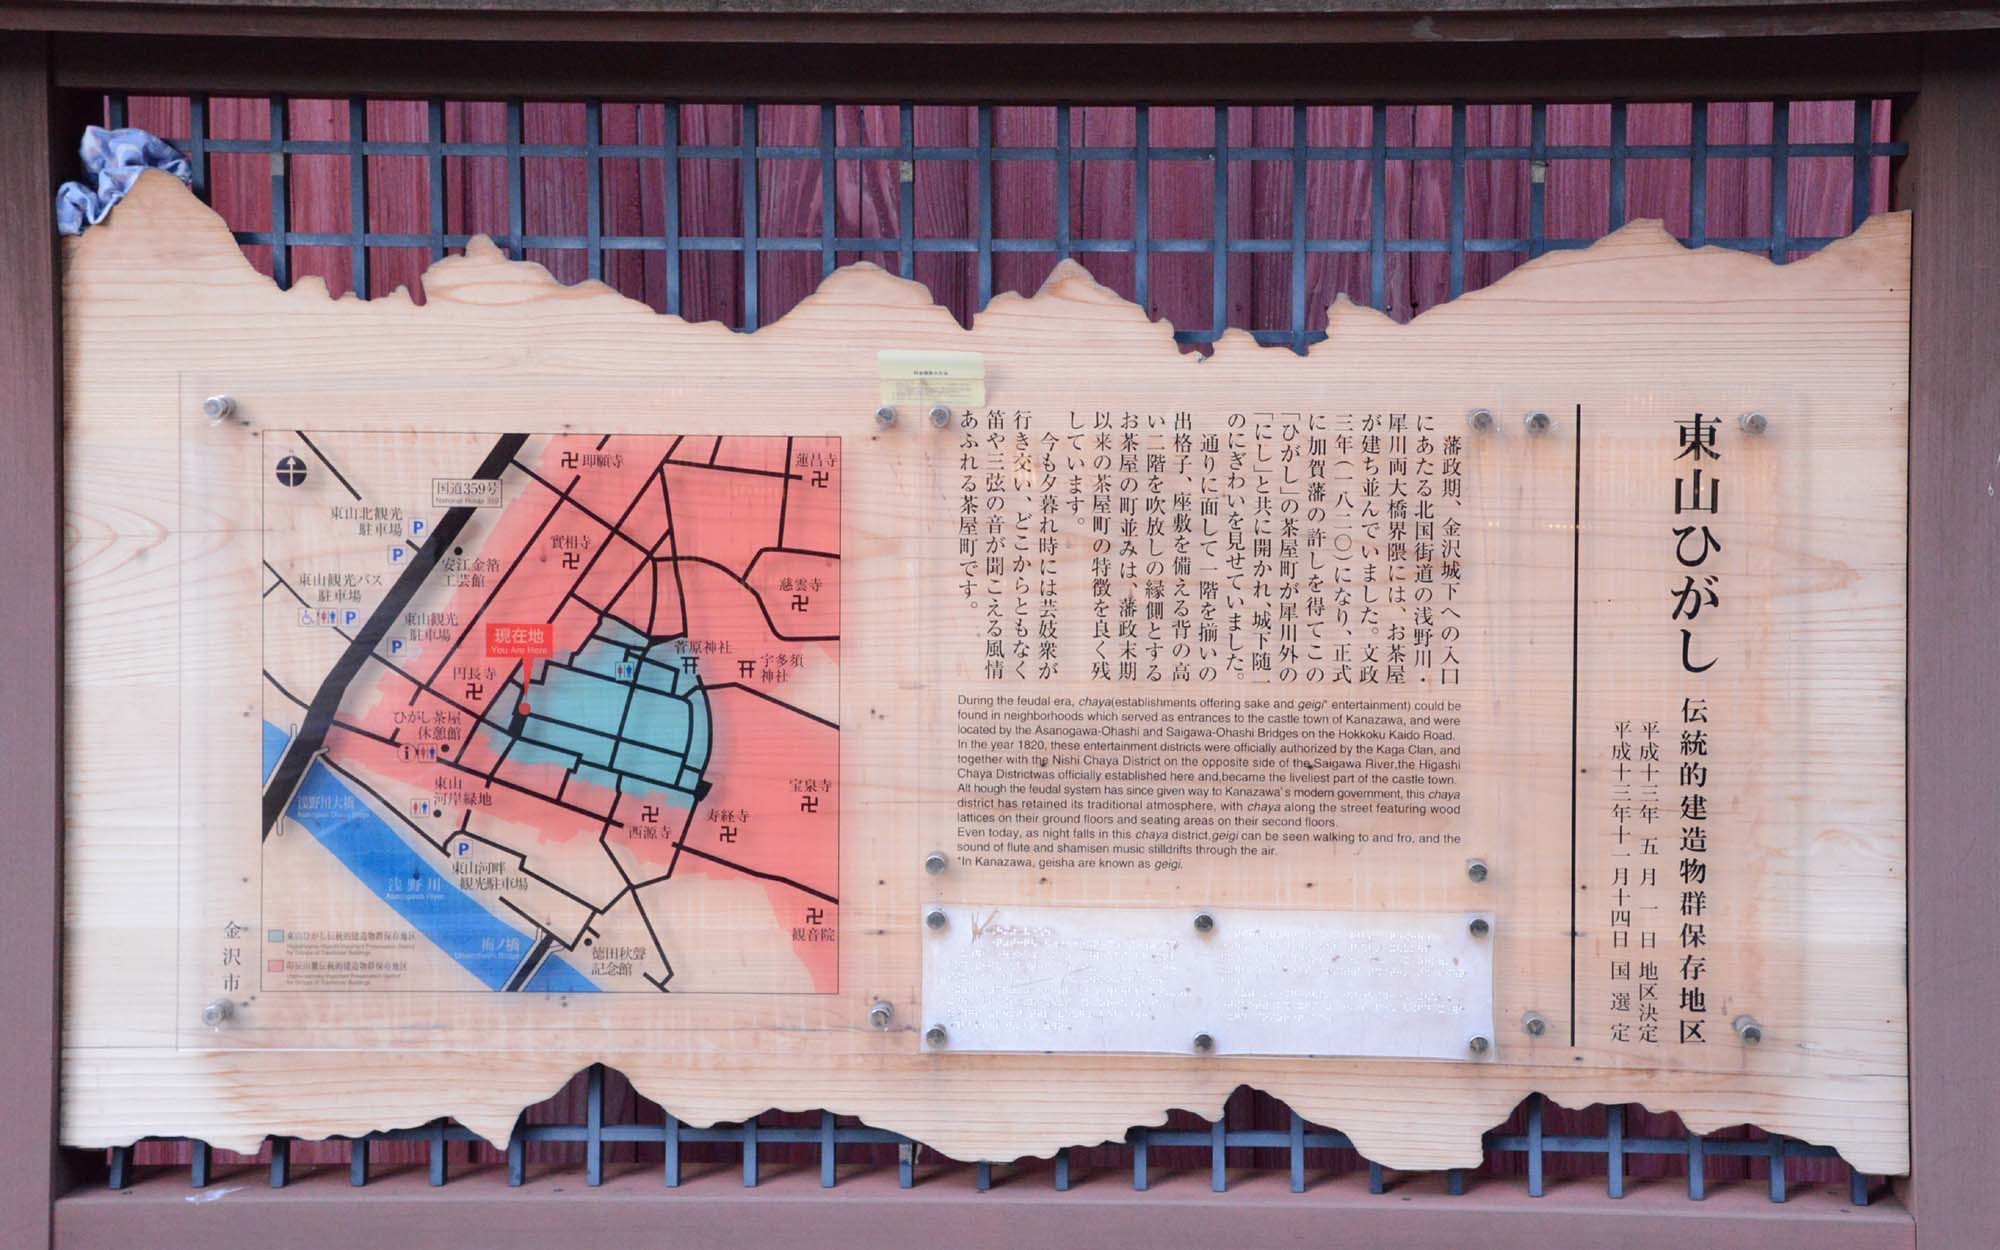 東山ひがし 伝統的建造物群保存地区
平成十三年 五月 一日 地区決定
平成十三年十一月十四日 国選定
藩政期、金沢城下への入口
にあたる北国街道の浅野川・
犀川両大橋界隈には、お茶屋
が建ち並んでいました。文政
三年(一八二〇)になり、正式
に加賀藩の許しを得てこの
「ひがし」の茶屋町が犀川外の
「にし」と共に開かれ、城下随一
のにぎわいを見せていました。
通りに面して一階を揃いの
出格子、座敷を備える背の高
い二階を吹放しの縁側とする
お茶屋の町並みは、藩政末期
以来の茶屋町の特徴を良く残
しています。
今も夕暮れ時には芸妓衆が
行き交い、どこからともなく
笛や三弦の音が聞こえる風情
あふれる茶屋町です。
During the feudal era, chaya(establishments offering sake and geigi* entertainment) could be
found in neighborhoods which served as entrances to the castle town of Kanazawa, and were
located by the Asanogawa-Ohashi and Saigawa-Ohashi Bridges on the Hokkoku Kaido Road.
In the year 1820, these entertainment districts were officially authorized by the Kaga Clan, and
together with the Nishi Chaya District on the opposite side of the Saigawa River,the Higashi
Chaya Districtwas officially established here and,became the liveliest part of the castle town.
Alt hough the feudal system has since given way to Kanazawa's modern government, this chaya
district has retained its traditional atmosphere, with chaya along the street featuring wood
lattices on their ground floors and seating areas on their second floors.
Even today, as night falls in this chaya district,geigi can be seen walking to and fro, and the
sound of flute and shamisen music stilldrifts through the air.
*In Kanazawa, geisha are known as geigi.
国道359号
National Route 359
即願寺
蓮昌寺
東山北観光
駐車場
P
P
安江金箔
工芸館
實相寺
慈雲寺
東山観光バス
駐車場
P
東山観光
駐車場
P
現在地
You Are Here
菅原神社
宇多須
神社
円長寺
ひがし茶屋
休憩館
i
東山
河岸緑地
宝泉寺
寿経寺
西源寺
浅野川大橋
Asanogawa Ohashi Bridge
P
東山河畔
観光駐車場
浅野川
Asanogawa River
梅ノ橋
観音院
徳田秋聲
記念館
東山ひがし伝統的建造物群保存地区
卯辰山麓伝統的建造物群保存地区
金沢市